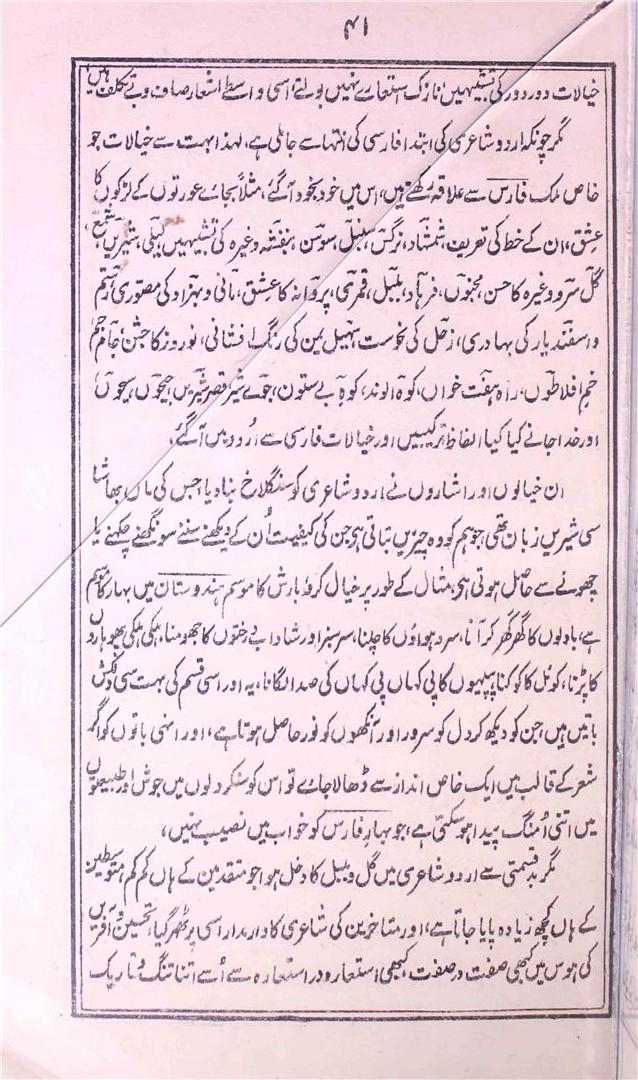 ۴۱
خیالات دور دور کی تشبیہیں نازک استعارے نہیں بولتے اسی واسطے اشعار صاف و بے تکلف ہیں،
مگر چونکہ اردو شاعری کی ابتدا فارسی کی انتہا سے جا ملی ہے، لہذا بہت سے خیالات جو
خاص ملک فارس سے علاقہ رکھتے ہیں، اس میں خود بخود آگئے، مثلاً بجائے عورتوں کے لڑکوں کا
عشق، ان کے خط کی تعریف، شمشاد، نرگس، سنبل، سوسن، بنفشہ وغیرہ کی تشبیہیں لیلی، شیریں، شمع،
گل سرو وغیرہ کا حسن، مجنوں، فرہاد، بلبل، قمری، پروانہ کا عشق، مانی و بہزاد کی مصوری، رستم
و اسفندیار کی بہادری، زحل کی نحوست سہیل یمن کی رنگ افشانی، نوروز کا جشن، جام جم
خم افلاطوں، راہ ہفت خواں، کوہ الوند، کوہ بے ستون، جوئے شیر قصر شیریں، جیحوں، سیحوں
اور خدا جانے کیا کیا الفاظ ترکیبیں اور خیالات فارسی سے اُردو میں آگئے،
ان خیالوں اور اشاروں نے اردو شاعری کو سنگلاخ بنا دیا، جس کی ماں بھاشا
سی شیریں زبان تھی، جو ہم کو وہ چیزیں بتاتی ہی جن کی کیفیت اُن کے دیکھنے سننے سونگھنے چکھنے یا
چھونے سے حاصل ہوتی ہی، مثال کے طور پر خیال کرو بارش کا موسم ہندوستان میں بہار کا موسم
ہے، بادلوں کا گھر گھر کر آنا، سرد ہواؤں کا چلنا، سرسبز اور شاداب درختوں کا جھومنا، ہلکی ہلکی پھوہاروں
کا پڑنا، کوئل کا کوکنا پپیہوں کا پی کہاں پی کہاں کی صدا لگانا، یہ اور اسی قسم کی بہت سی دلکش
باتیں ہیں، جن کو دیکھ کر دل کو سرور اور آنکھوں کو نور حاصل ہوتا ہے، اور انہی باتوں کو اگر
شعر کے قالب میں ایک خاص انداز سے ڈھالا جائے تو اس کو سنکر دلوں میں جوش اور طبیعتوں
میں اتنی اُمنگ پیدا ہو سکتی ہے، جو بہار فارس کو خواب میں نصیب نہیں،
مگر بدقسمتی سے اردو شاعری میں گل و بلبل کا دخل ہوا جو متقدمین کے ہاں کم کم، متوسطین
کے ہاں کچھ زیادہ پایا جاتا ہے، اور متاخرین کی شاعری کا دارمدار اسی پر ٹھہر گیا، تحسین و آفریں
کی ہوس میں کبھی صفت در صفت، کبھی استعارہ در استعارہ سے اُسے اتنا تنگ و تاریک